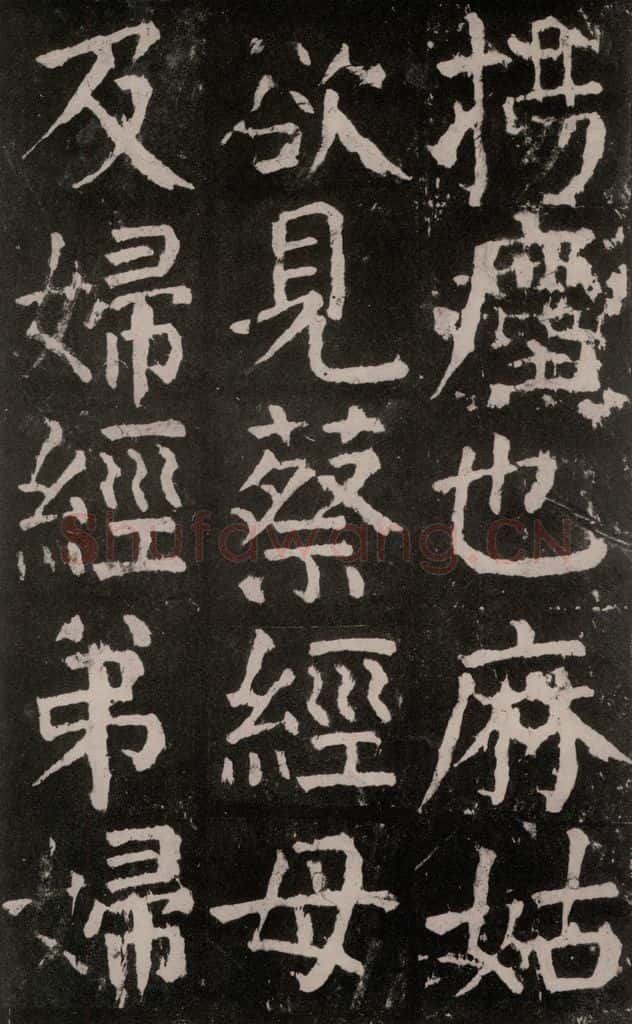 揚塵也麻姑
欲見蔡經母
及婦經弟婦
Shufawang.CN